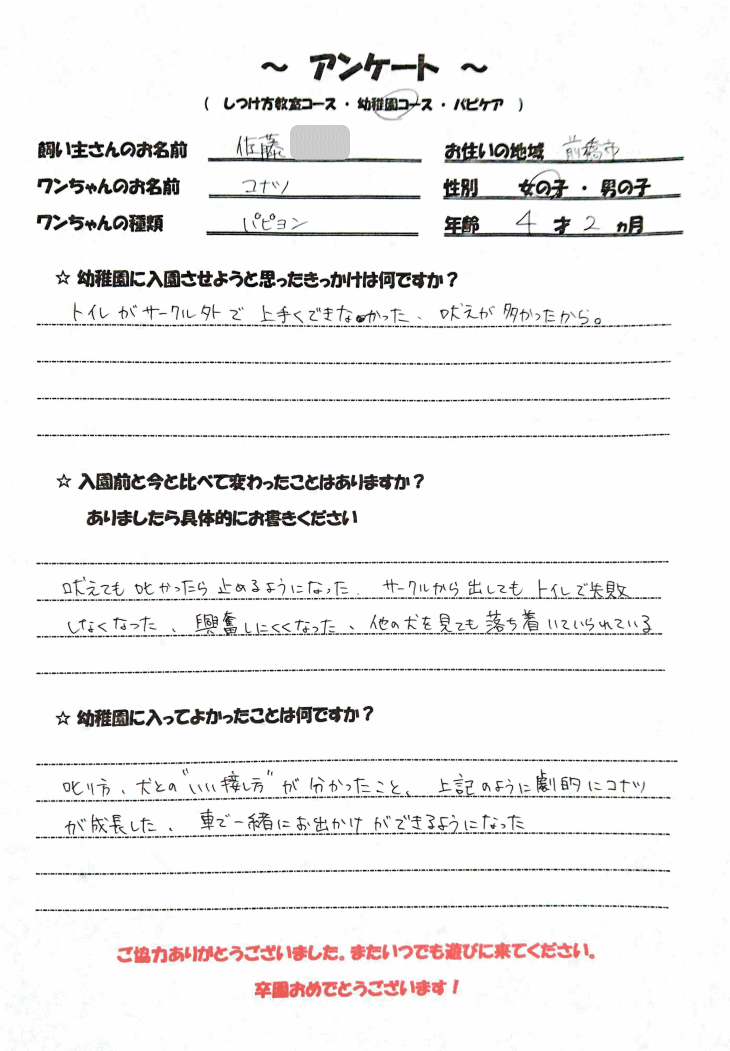 ～ アンケート ～
（ しつけ方教室コース・幼稚園コース・パピケア ）
飼い主さんのお名前 佐藤 お住いの地域 前橋市
ワンちゃんのお名前 コナツ 性別 女の子・男の子
ワンちゃんの種類 パピヨン 年齢 4 才 2 ヵ月
☆ 幼稚園に入園させようと思ったきっかけは何ですか？
トイレがサークル外で上手くできなかった、吠えが多かったから。
☆ 入園前と今と比べて変わったことはありますか？
ありましたら具体的にお書きください
吠えても叱かったら止めるようになった. サークルから出してもトイレで失敗
しなくなった、興奮しにくくなった、他の犬を見ても落ち着いていられている
☆ 幼稚園に入ってよかったことは何ですか？
叱り方、犬との"いい接し方"が分かったこと、上記のように劇的にコナツ
が成長した、車で一緒にお出かけができるようになった
ご協力ありがとうございました。またいつでも遊びに来てください。
卒園おめでとうございます！